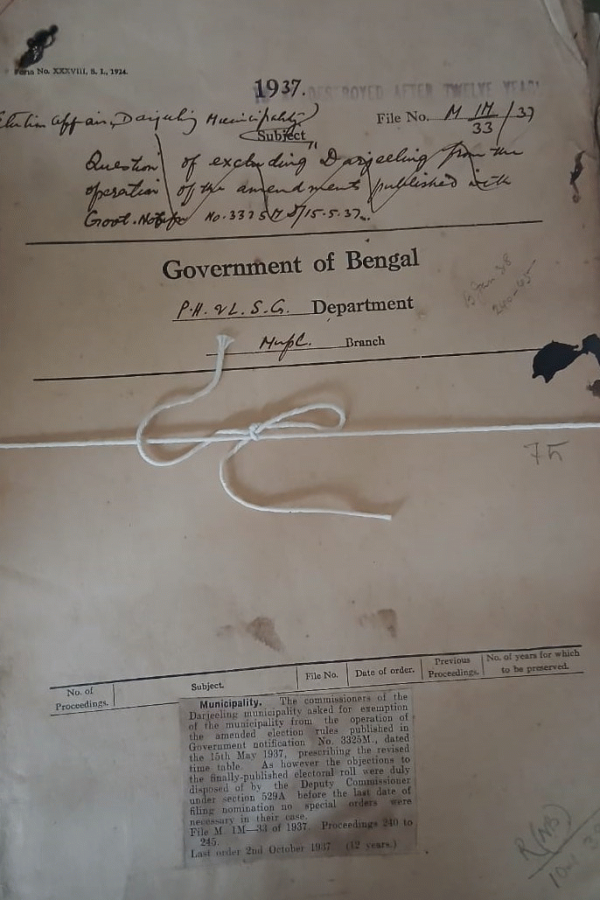 Form No. XXXVIII, S. I., 1924.
1937.
DESTROYED AFTER TWELVE YEARS
Election affairs, Darjeeling Municipality
File No. M 1M/33/37
Subject
Question of excluding Darjeeling from the
operation of the amendments published with
Govt. Notifn No. 3325 M d/15-5-37.
Government of Bengal
P.H. & L. S. G. Department
Munpl. Branch
15 Jan 38
240-45
75
No. of Proceedings.
Subject.
File No.
Date of order.
Previous Proceedings.
No. of years for which to be preserved.
Municipality. The commissioners of the
Darjeeling municipality asked for exemption
of the municipality from the operation of
the amended election rules published in
Government notification No. 3325M., dated
the 15th May 1937, prescribing the revised
time table. As however the objections to
the finally-published electoral roll were duly
disposed of by the Deputy Commissioner
under section 529A before the last date of
filing nomination no special orders were
necessary in their case.
File M. 1M—33 of 1937. Proceedings 240 to
245.
Last order 2nd October 1937. (12 years.)